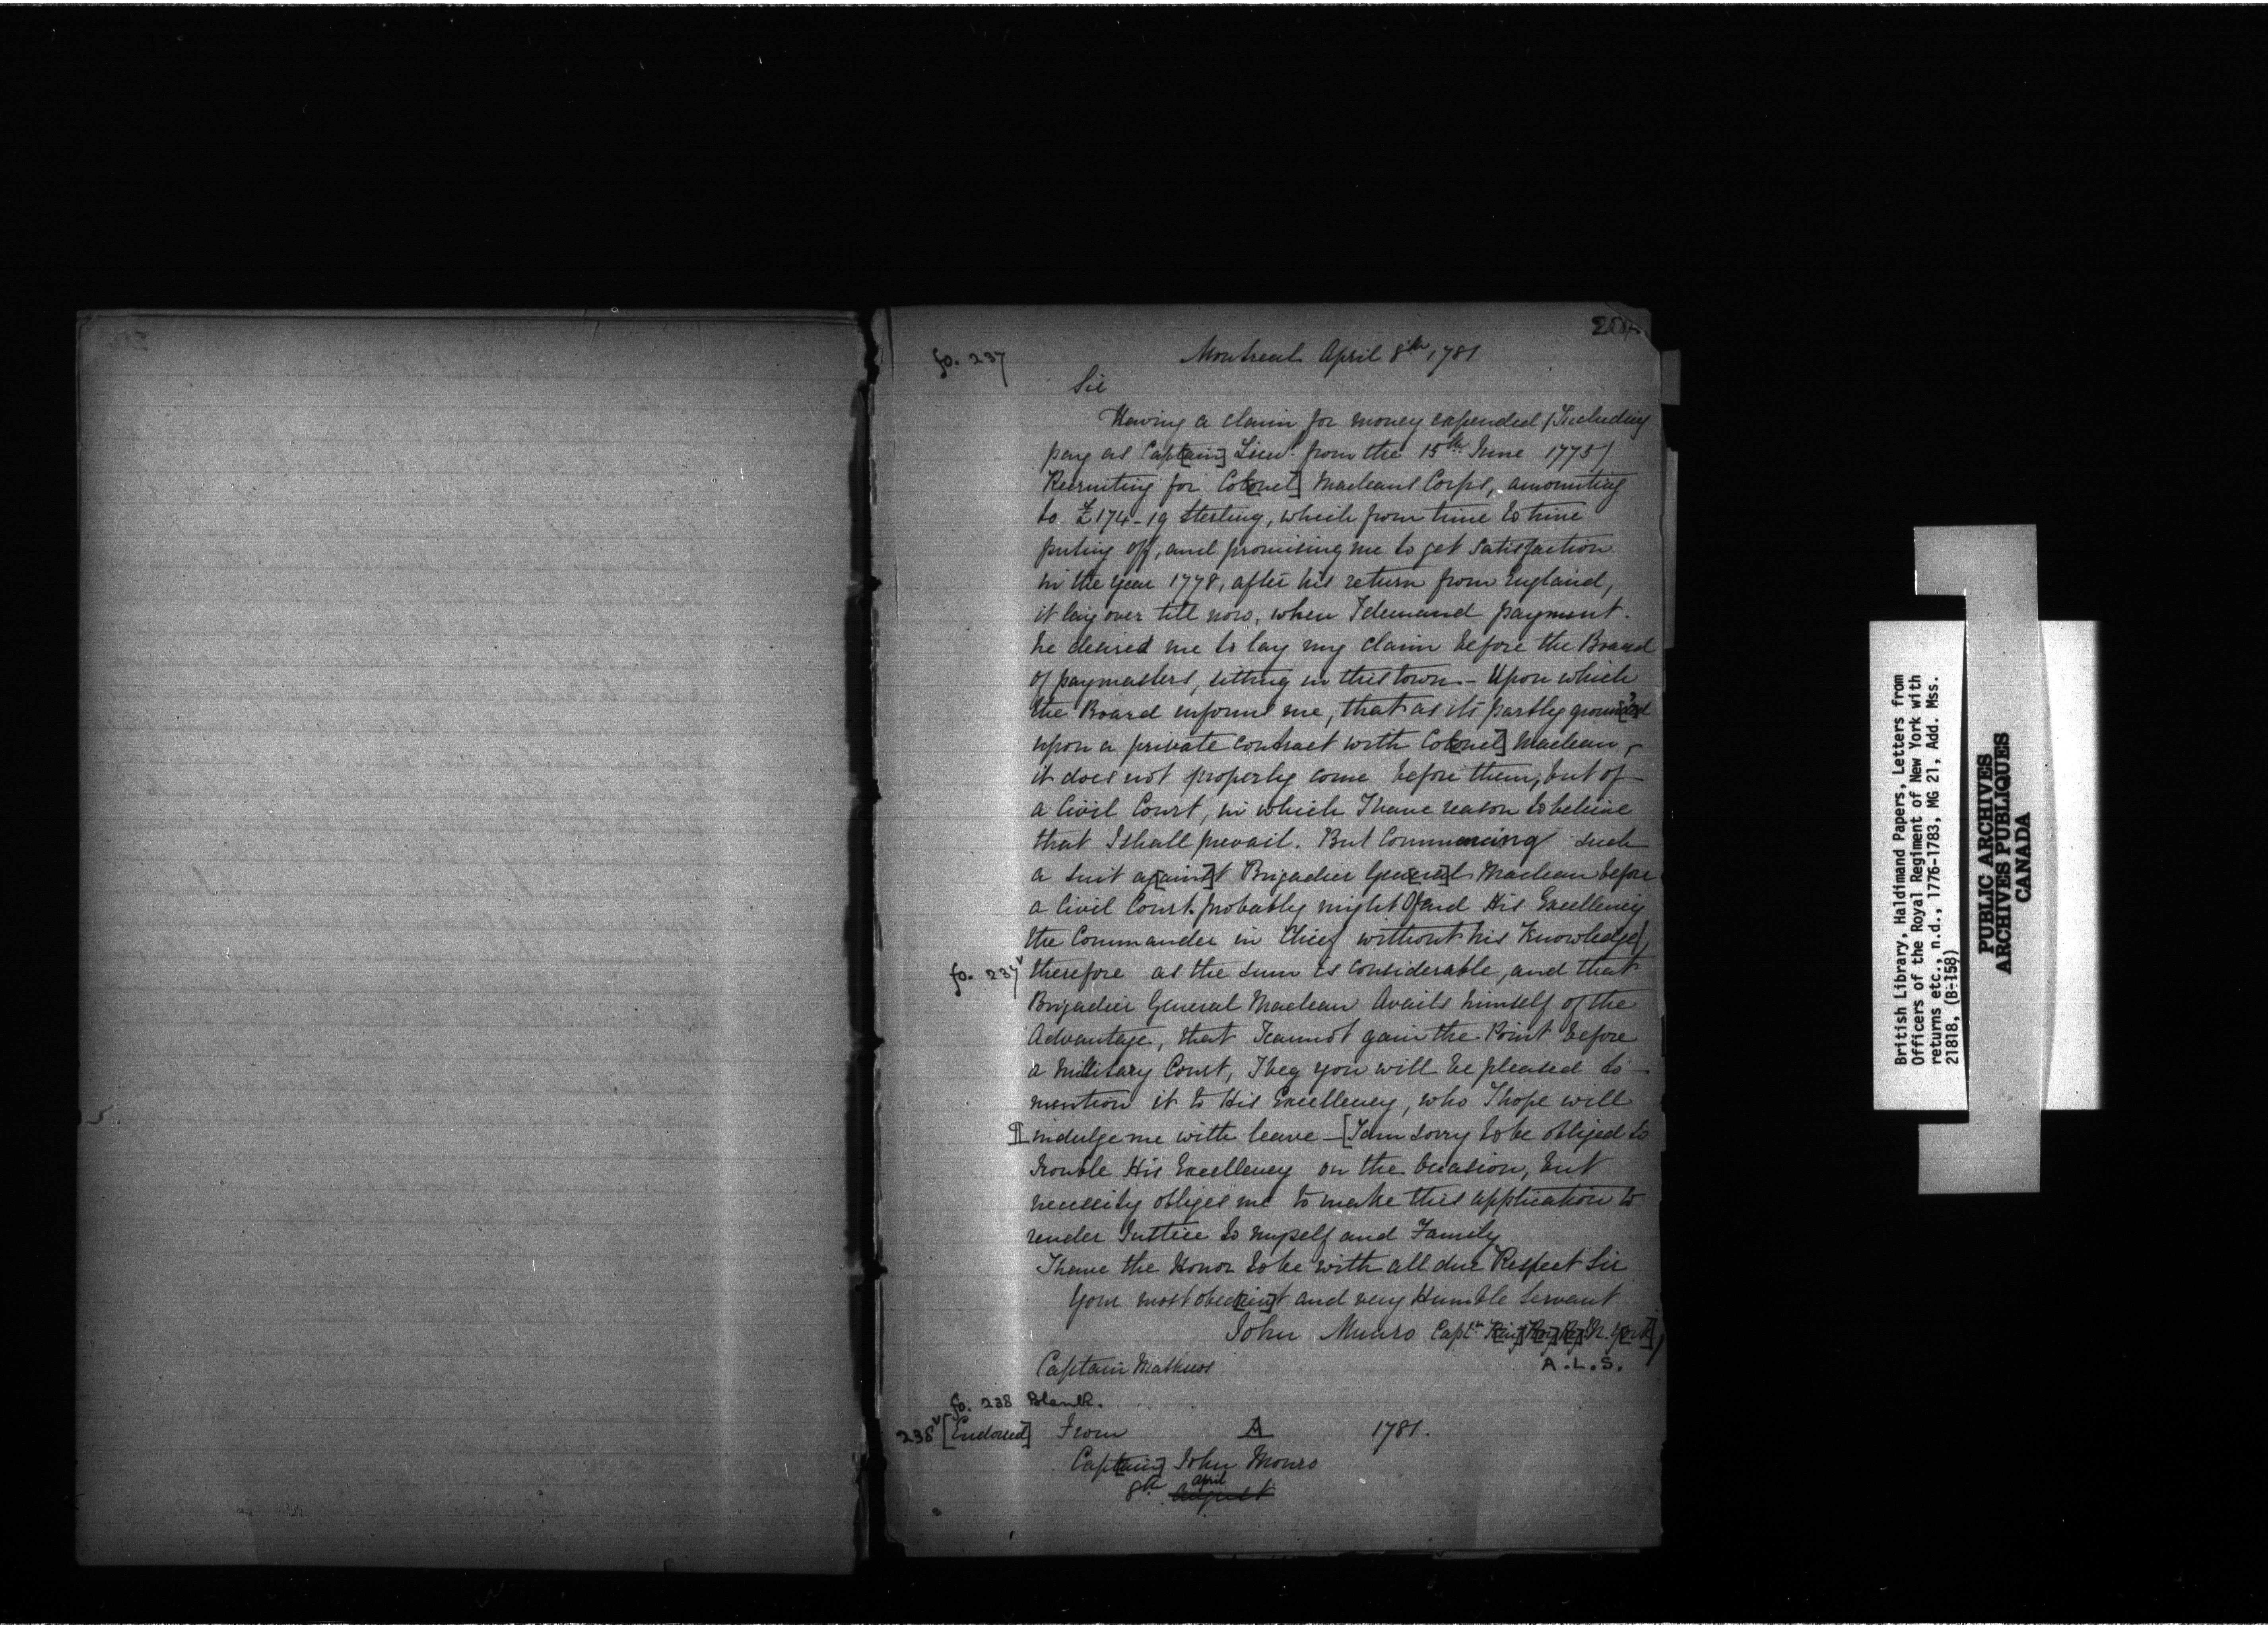 fo. 237
Montreal April 8th 1781
Sir
Having a claim for money expended (Including
pay as Capt[ain] Lieut. from the 15th June 1775)
Recruiting for Col[onel] Macleans Corps, amounting
to £174-19 Sterling, which from time to time
puting off, and promising me to get Satisfaction
in the year 1778, after his return from England,
it lay over till now, when I demand payment.
he desired me to lay my claim before the Board
of paymasters, sitting in this town - Upon which
the Board inform'd me, that as its partly ground[?e]d
upon a private contract with Col[onel] Maclean,
it does not properly come before them, but of
a Civil Court, in which I have reason to believe
that I shall prevail. But Commencing such
a suit ag[ains]t Brigadier Gen[era]l Maclean before
a Civil Court probably might Ofend His Excellency
the Commander in Chief without his Knowledge,
fo. 237v therefore as the sum is considerable, and that
Brigadier General Maclean Avails himself of the
Advantage, that I cannot gain the Point before
a Military Court, I beg you will be pleased to
mention it to His Excellency, who I hope will
¶ indulge me with leave - [I am sorry to be obliged to
trouble His Excellency on the Occasion, but
necessity obliges me to make this application to
render Justice to myself and Family
I have the Honor to be with all due Respect Sir
Your most obed[ien]t and very Humble Servant
John Munro Capt. Kin[g's] Roy[al] Reg[t] N. Y[ork]
Captain Mathews
A.L.S.
fo. 238 Blank.
238v [Endorsed] From A 1781.
Capt[ain] John Monro
8th April
August
British Library, Haldimand Papers, Letters from
Officers of the Royal Regiment of New York with
returns etc., n.d., 1776-1783, MG 21, Add. Mss.
21818, (B-158)
PUBLIC ARCHIVES
ARCHIVES PUBLIQUES
CANADA